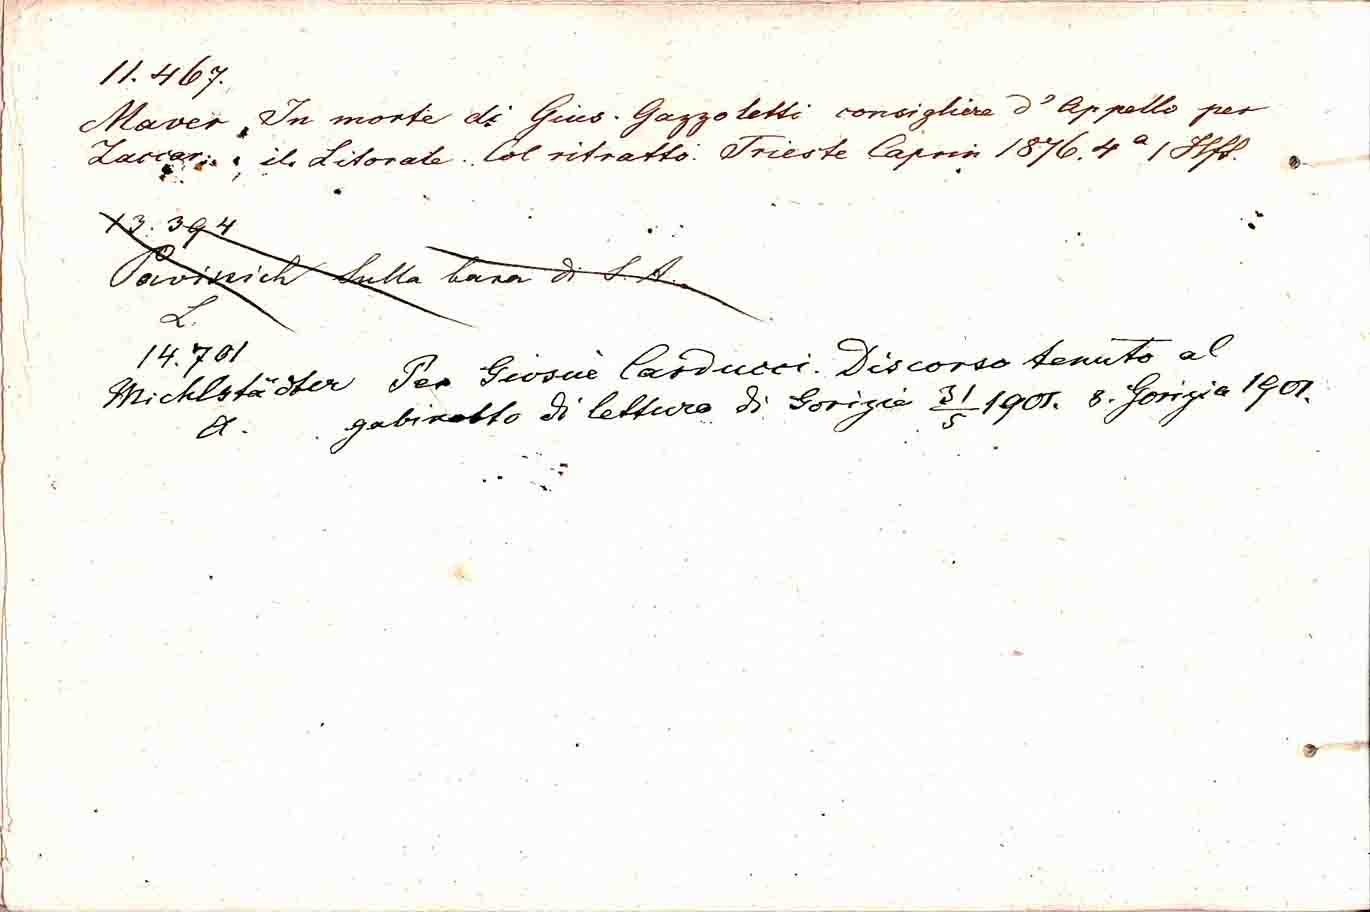 11.467.
Maver In morte di Gius. Gazzoletti consigliere d'Appello per
Zaccar. il Litorale. Col ritratto. Trieste Caprin 1876. 4a 1 Hft.
13.394
Pavissich Sulla bara di S. A.
L.
14.701
Michlstädter Per Giosuè Carducci. Discorso tenuto al
A. gabinetto di lettura di Gorizia 31/5 1901. 8. Gorizia 1901.